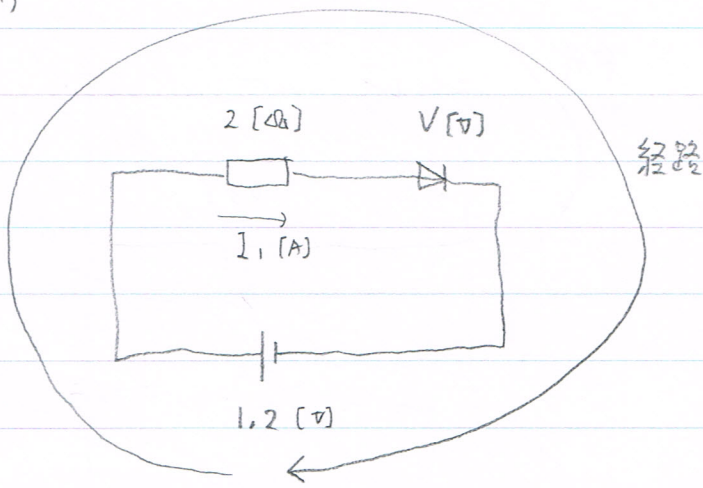 2 [Ω] V [V]
経路
I₁ [A]
1.2 [V]